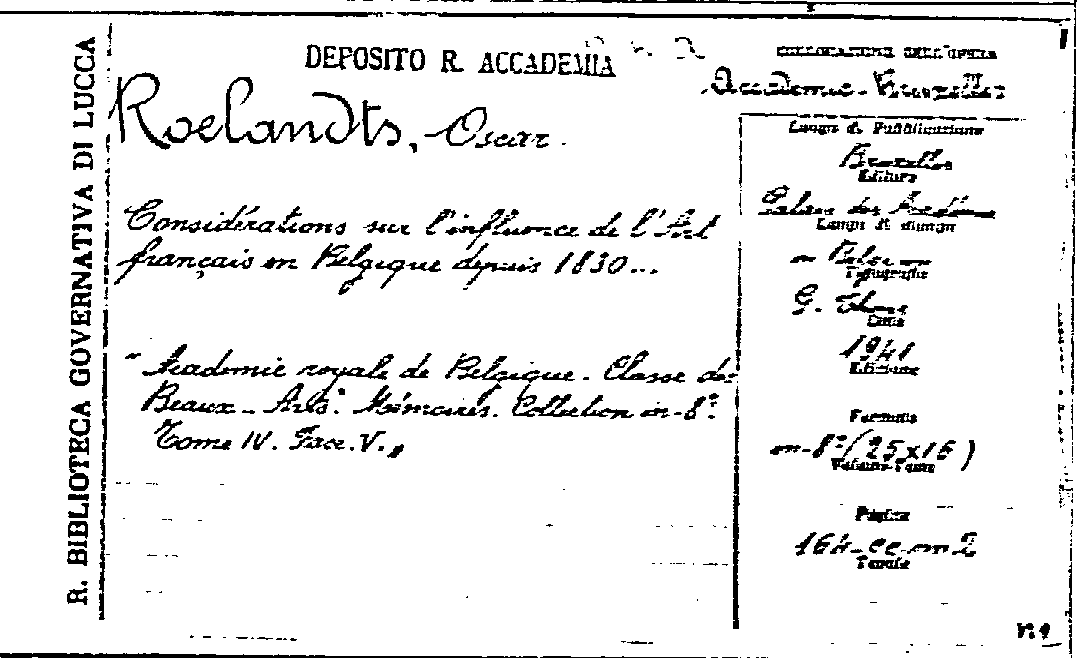 R. BIBLIOTECA GOVERNATIVA DI LUCCA
DEPOSITO R. ACCADEMIA
Roelandts, Oscar.
Considérations sur l'influence de l'Art
français en Belgique depuis 1830...
" Academie royale de Belgique. Classe des
Beaux-Arts". Mémoires. Collection in-8°.
Tome IV. Fasc. V. "
COLLOCAZIONE DELL'OPERA
Accademie - Bruxelles
Luogo di Pubblicazione
Bruxelles
Editore
Palais des Académies
Luogo di stampa
Tipografia
G.
1941
Edizione
Formato
in-8° (25x16)
Volume-Tomo
Pagine
164
Tavole